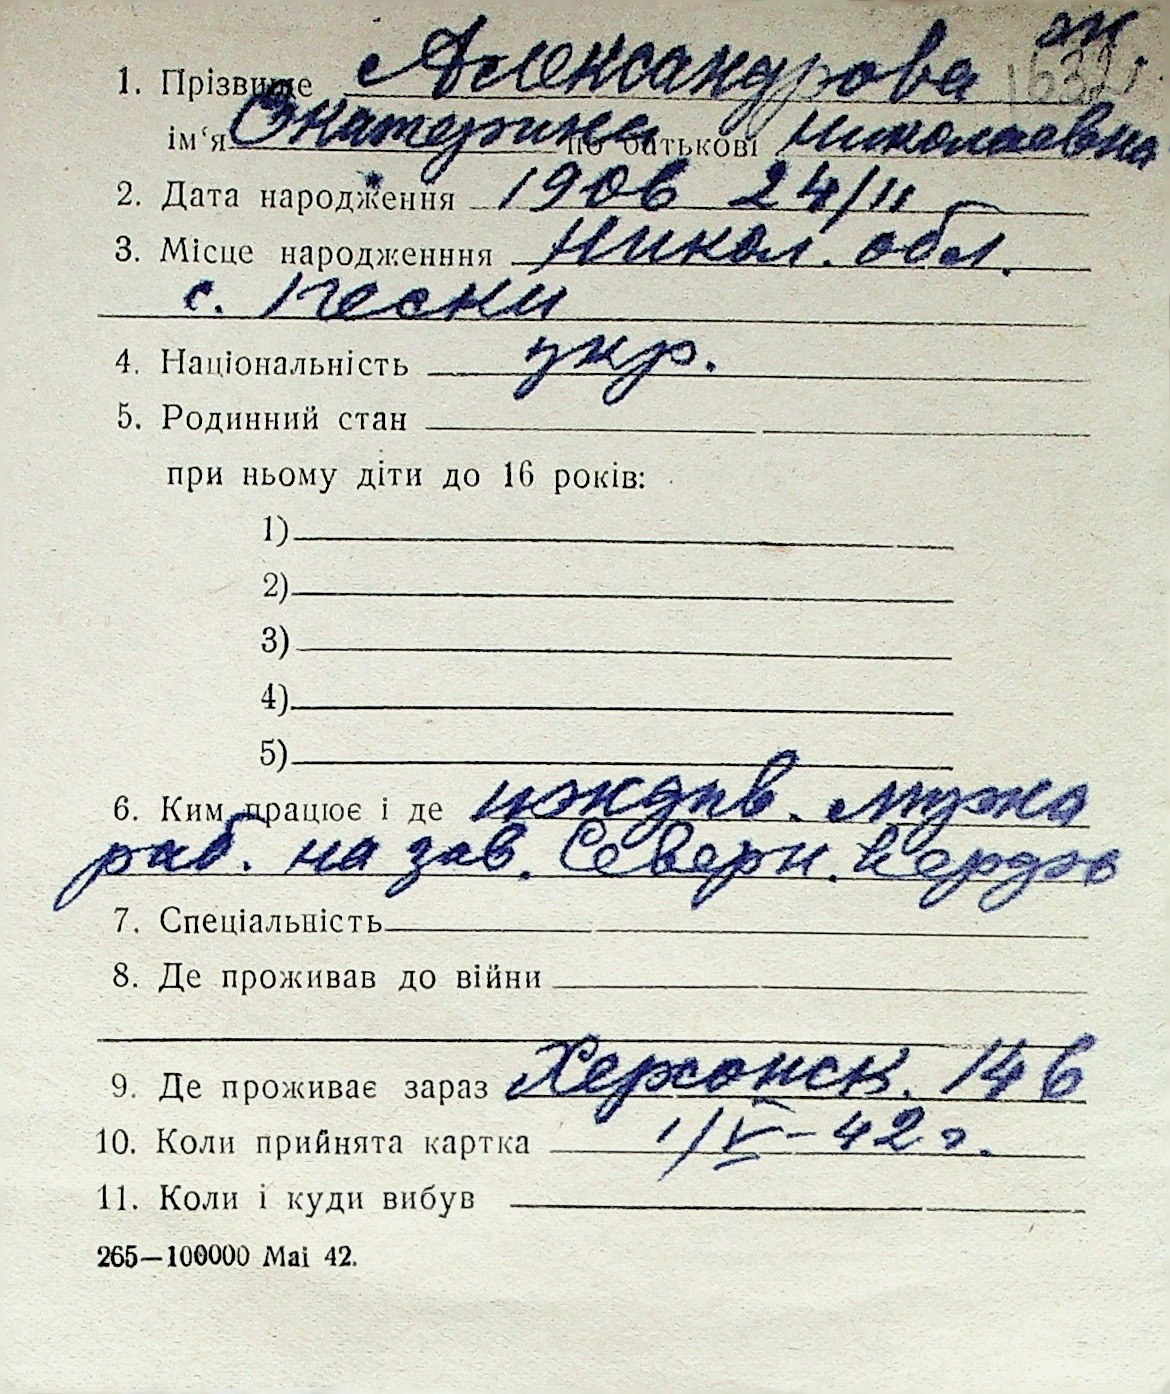 эк.
1632
1. Прізвище Александрова
ім‘я Екатерина по батькові Николаевна
2. Дата народження 1906 24/II
3. Місце народженння Никол. обл.
с. Пески
4. Національність укр.
5. Родинний стан
при ньому діти до 16 років:
1)
2)
3)
4)
5)
6. Ким працює і де иждив. мужа
раб. на зав. Северн.
7. Спеціальність
8. Де проживав до війни
9. Де проживає зараз Херсонск. 146
10. Коли прийнята картка 1/V-42 г.
11. Коли і куди вибув
265—100000 Mai 42.